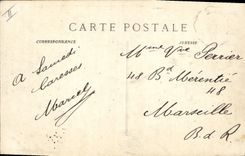 II
CARTE POSTALE
CORRESPONDANCE
ADRESSE
À Samedi
Caresses
Marcel
Mme Vve Perrier
48 Bd Mérentié
48
Marseille
B d R